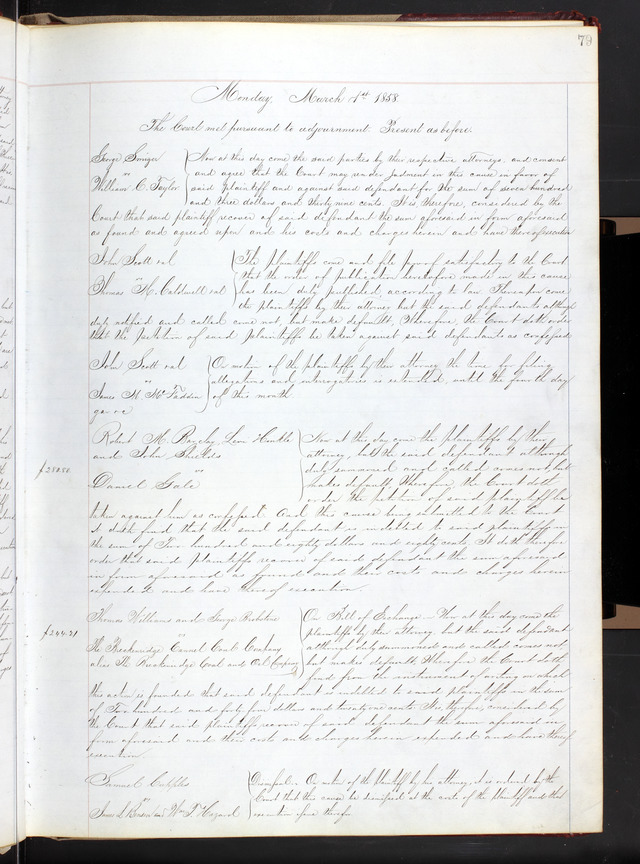 79
Monday March 1st 1858
The Court met pursuant to adjournment. Present as before.
George
vs
William C. Taylor
Now at this day come the said parties by their respective attorneys, and consent
and agree that the Court may render judgment in this cause in favor of
said plaintiff and against said defendant for the sum of seven hundred
and three dollars and thirty nine cents. It is, therefore, considered by the
Court that said plaintiff recover of said defendant the sum aforesaid in form aforesaid
as found and agreed upon and his costs and charges herein and have thereof execution
John Scott et al
vs
Thomas H. Caldwell et al
The plaintiffs come and file proof satisfactory to the Court
that the order of publication heretofore made in this cause
has been duly published according to law. Thereupon come
the plaintiffs by their attorney but the said defendants although
duly notified and called come not, but make default, Therefore, the Court doth order
that the petition of said plaintiffs be taken against said defendants as confessed
John Scott et al
vs
James M. McFadden
ga
On motion of the plaintiffs by their attorney the time for filing
allegations and interrogatories is extended until the fourth day
of this month
Robert M. Hunkle
and John Shields
vs
Daniel Gale
$280.80
Now at this day come the plaintiffs by their
attorney, but the said defendant although
duly summoned and called comes not, but
makes default, therefore, the Court doth
order the petition of said plaintiffs be
taken against him as confessed. And the cause being submitted to the Court
it doth find that the said defendant is indebted to said plaintiffs in
the sum of Two hundred and eighty dollars and eighty cents. It doth therefore
order that said plaintiffs recover of said defendant the sum aforesaid
in form aforesaid as found and their costs and charges herein
expended and have thereof execution.
Thomas Williams and George
vs
The Breckenridge Cannel Coal Company
alias The Breckenridge Coal and Oil Company
$244.21
On Bill of Exchange. Now at this day come the
plaintiffs by their attorney, but the said defendant
although duly summoned and called comes not
but makes default, Therefore the Court doth
find from the instrument of writing on which
the action is founded that said defendant is indebted to said plaintiffs in the sum
of Two hundred and forty four dollars and twenty one cents. It is, therefore, considered by
the Court that said plaintiffs recover of said defendant the sum aforesaid in
form aforesaid and their costs and charges herein expended and have thereof
execution.
Samuel Cupples
vs
James S. and Wm T. Hazard
Dismissed. On motion of the Plaintiff by his attorney, it is ordered by the
Court that this cause be dismissed at the costs of the plaintiff and that
execution issue therefor